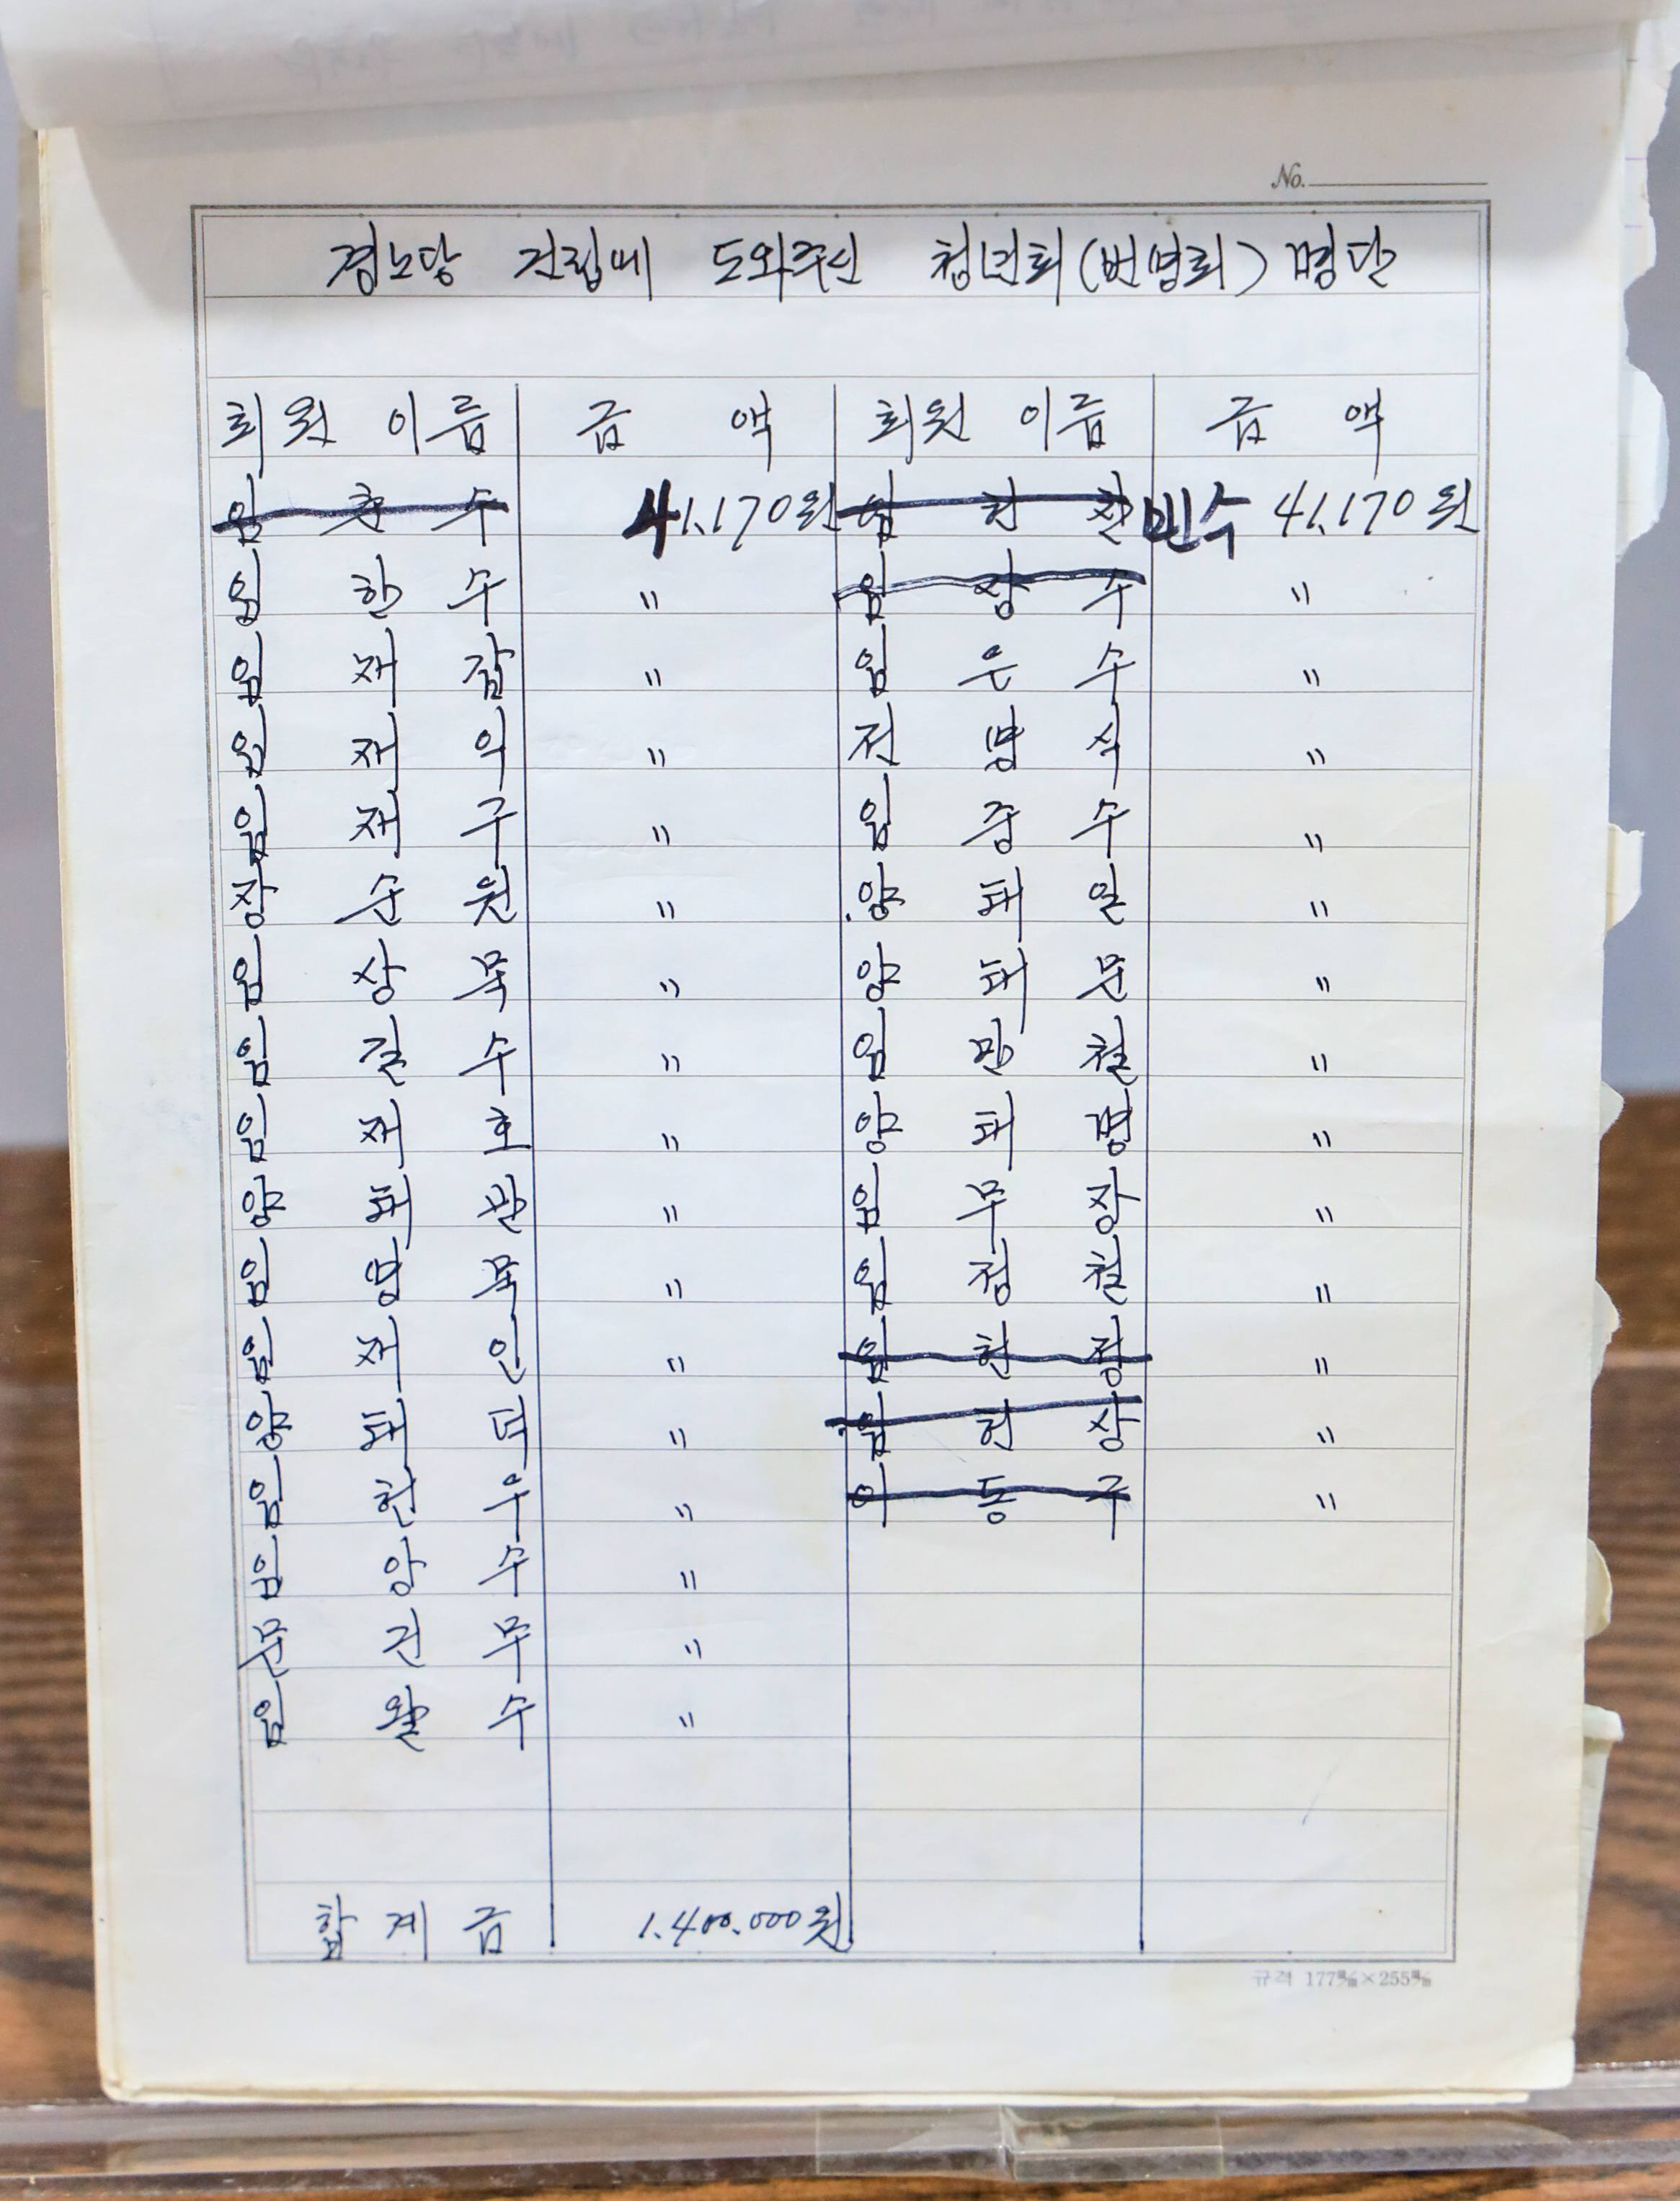 No.
경노당 건립때 도와주신 청년회(번영회) 명단
회원 이름 금 액 회원 이름 금 액
임 춘 수 41.170원 임 헌 철 민수 41.170원
임 한 수 〃 임 상 수 〃
임 재 갑 〃 임 은 수 〃
임 재 익 〃 전 명 식 〃
임 재 구 〃 임 중 수 〃
장 순 원 〃 양 태 일 〃
임 상 묵 〃 양 태 문 〃
임 길 수 〃 임 만 철 〃
임 재 호 〃 양 태 명 〃
양 태 관 〃 임 무 장 〃
임 영 묵 〃 임 정 철 〃
임 재 인 〃 임 헌 정 〃
양 태 덕 〃 임 헌 상 〃
임 헌 우 〃 이 동 구 〃
임 양 수 〃
문 건 무 〃
임 왈 수 〃
합 계 금 1.400.000원
규격 177㎜×255㎜